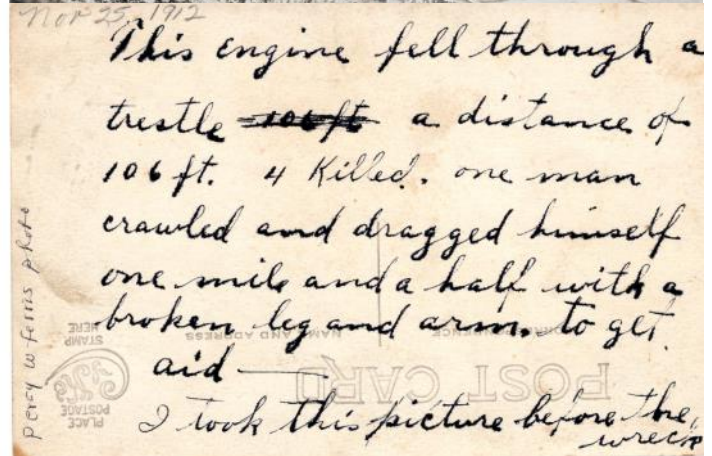 Nov 25, 1912
This engine fell through a
trestle 106 ft a distance of
106 ft. 4 Killed. one man
crawled and dragged himself
one mile and a half with a
broken leg and arm. to get
aid —
I took this picture before the
wreck
Percy W Ferris photo
POST CARD
CORRESPONDENCE
NAME AND ADDRESS
PLACE
POSTAGE
STAMP
HERE